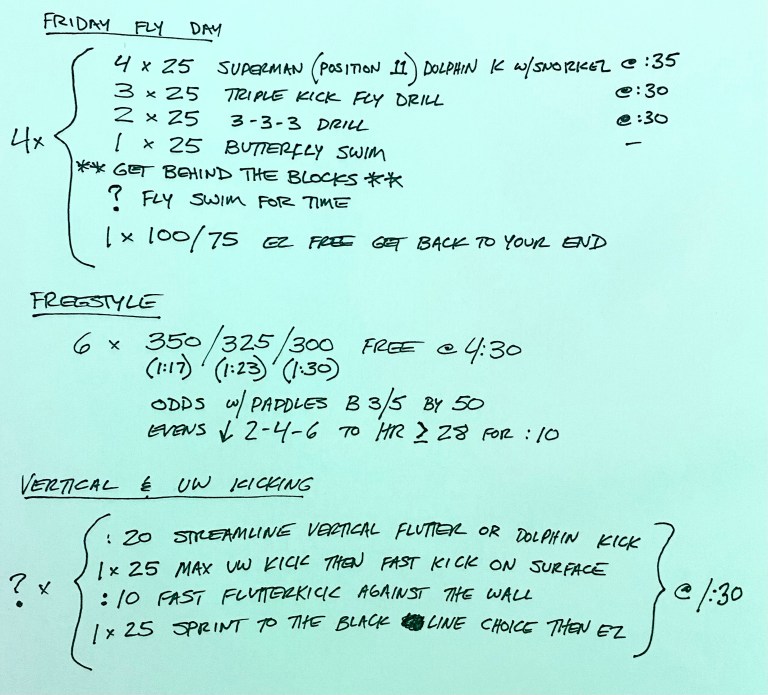 FRIDAY FLY DAY
4 x 25 SUPERMAN (POSITION 11) DOLPHIN K W/SNORKEL @ :35
3 x 25 TRIPLE KICK FLY DRILL @ :30
2 x 25 3-3-3 DRILL @ :30
4x
1 x 25 BUTTERFLY SWIM –
** GET BEHIND THE BLOCKS **
? FLY SWIM FOR TIME
1 x 100/75 EZ FREE GET BACK TO YOUR END
FREESTYLE
6 x 350/325/300 FREE @ 4:30
(1:17) (1:23) (1:30)
ODDS W/ PADDLES B 3/5 BY 50
EVENS ↓ 2-4-6 TO HR ≥ 28 FOR :10
VERTICAL & UW KICKING
:20 STREAMLINE VERTICAL FLUTTER OR DOLPHIN KICK
1 x 25 MAX UW KICK THEN FAST KICK ON SURFACE
? x @ 1:30
:10 FAST FLUTTERKICK AGAINST THE WALL
1 x 25 SPRINT TO THE BLACK LINE CHOICE THEN EZ